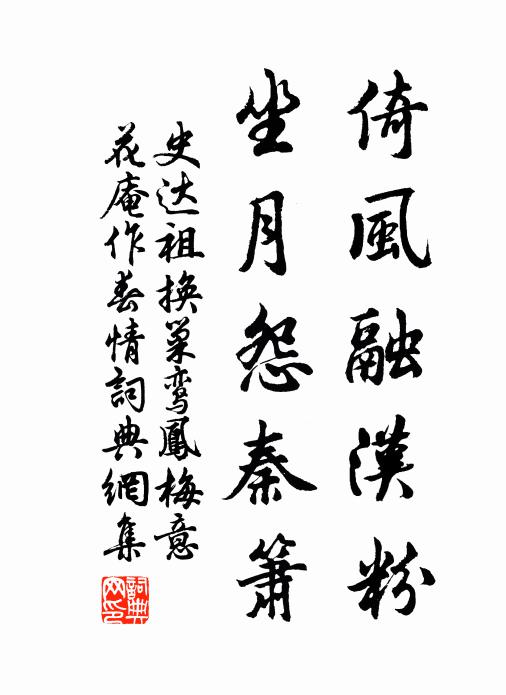 倚風融漢粉
坐月怨秦簫
史达祖換巢鸾鳳梅意
花庵作春情詞典網集
詞典网印